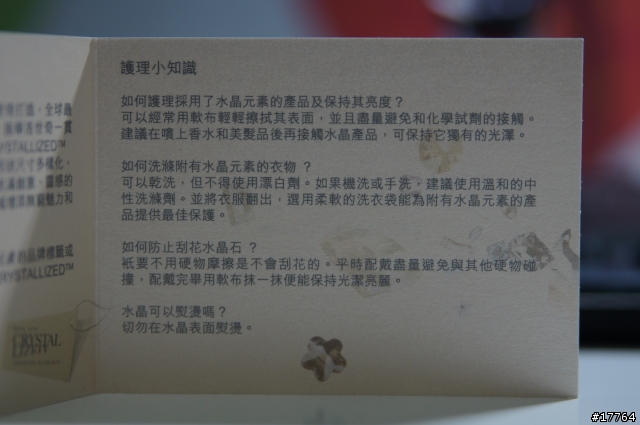 護理小知識
如何護理採用了水晶元素的產品及保持其亮度？
可以經常用軟布輕輕擦拭其表面，並且盡量避免和化學試劑的接觸。
建議在噴上香水和美髮品後再接觸水晶產品，可保持它獨有的光澤。
如何洗滌附有水晶元素的衣物？
可以乾洗，但不得使用漂白劑。如果機洗或手洗，建議使用溫和的中
性洗滌劑。並將衣服翻出，選用柔軟的洗衣袋能為附有水晶元素的產
品提供最佳保護。
如何防止刮花水晶石？
衹要不用硬物摩擦是不會刮花的。平時配戴盡量避免與其他硬物碰
撞，配戴完畢用軟布抹一抹便能保持光潔亮麗。
水晶可以熨燙嗎？
切勿在水晶表面熨燙。
CRYSTAL
#17764